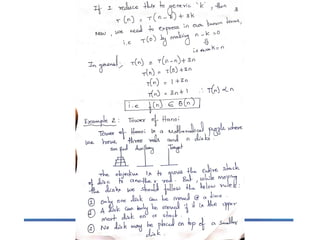 If I reduce this to generic 'k', then
T(n) = T(n-k) + 2k
Now, we need to express in even known terms,
i.e T(0) by making n-k=0
k=n
In general, T(n) = T(n-n)+2n
T(n) = T(0)+2n
T(n) = 1+2n
T(n) = 2n+1 ∴ T(n) ∝ n
i.e f(n) ∈ θ(n)
Example 2: Tower of Hanoi
Tower of Hanoi is a mathematical puzzle where
we have three rods and n disks.
Auxiliary Target
The objective is to move the entire stack
of disks to another rod. But while moving
the disks we should follow the below rules:
① Only one disk can be moved @ a time
② A disk can only be moved if it is the upper
most disk on a stack.
③ No disk may be placed on top of a smaller
disk.